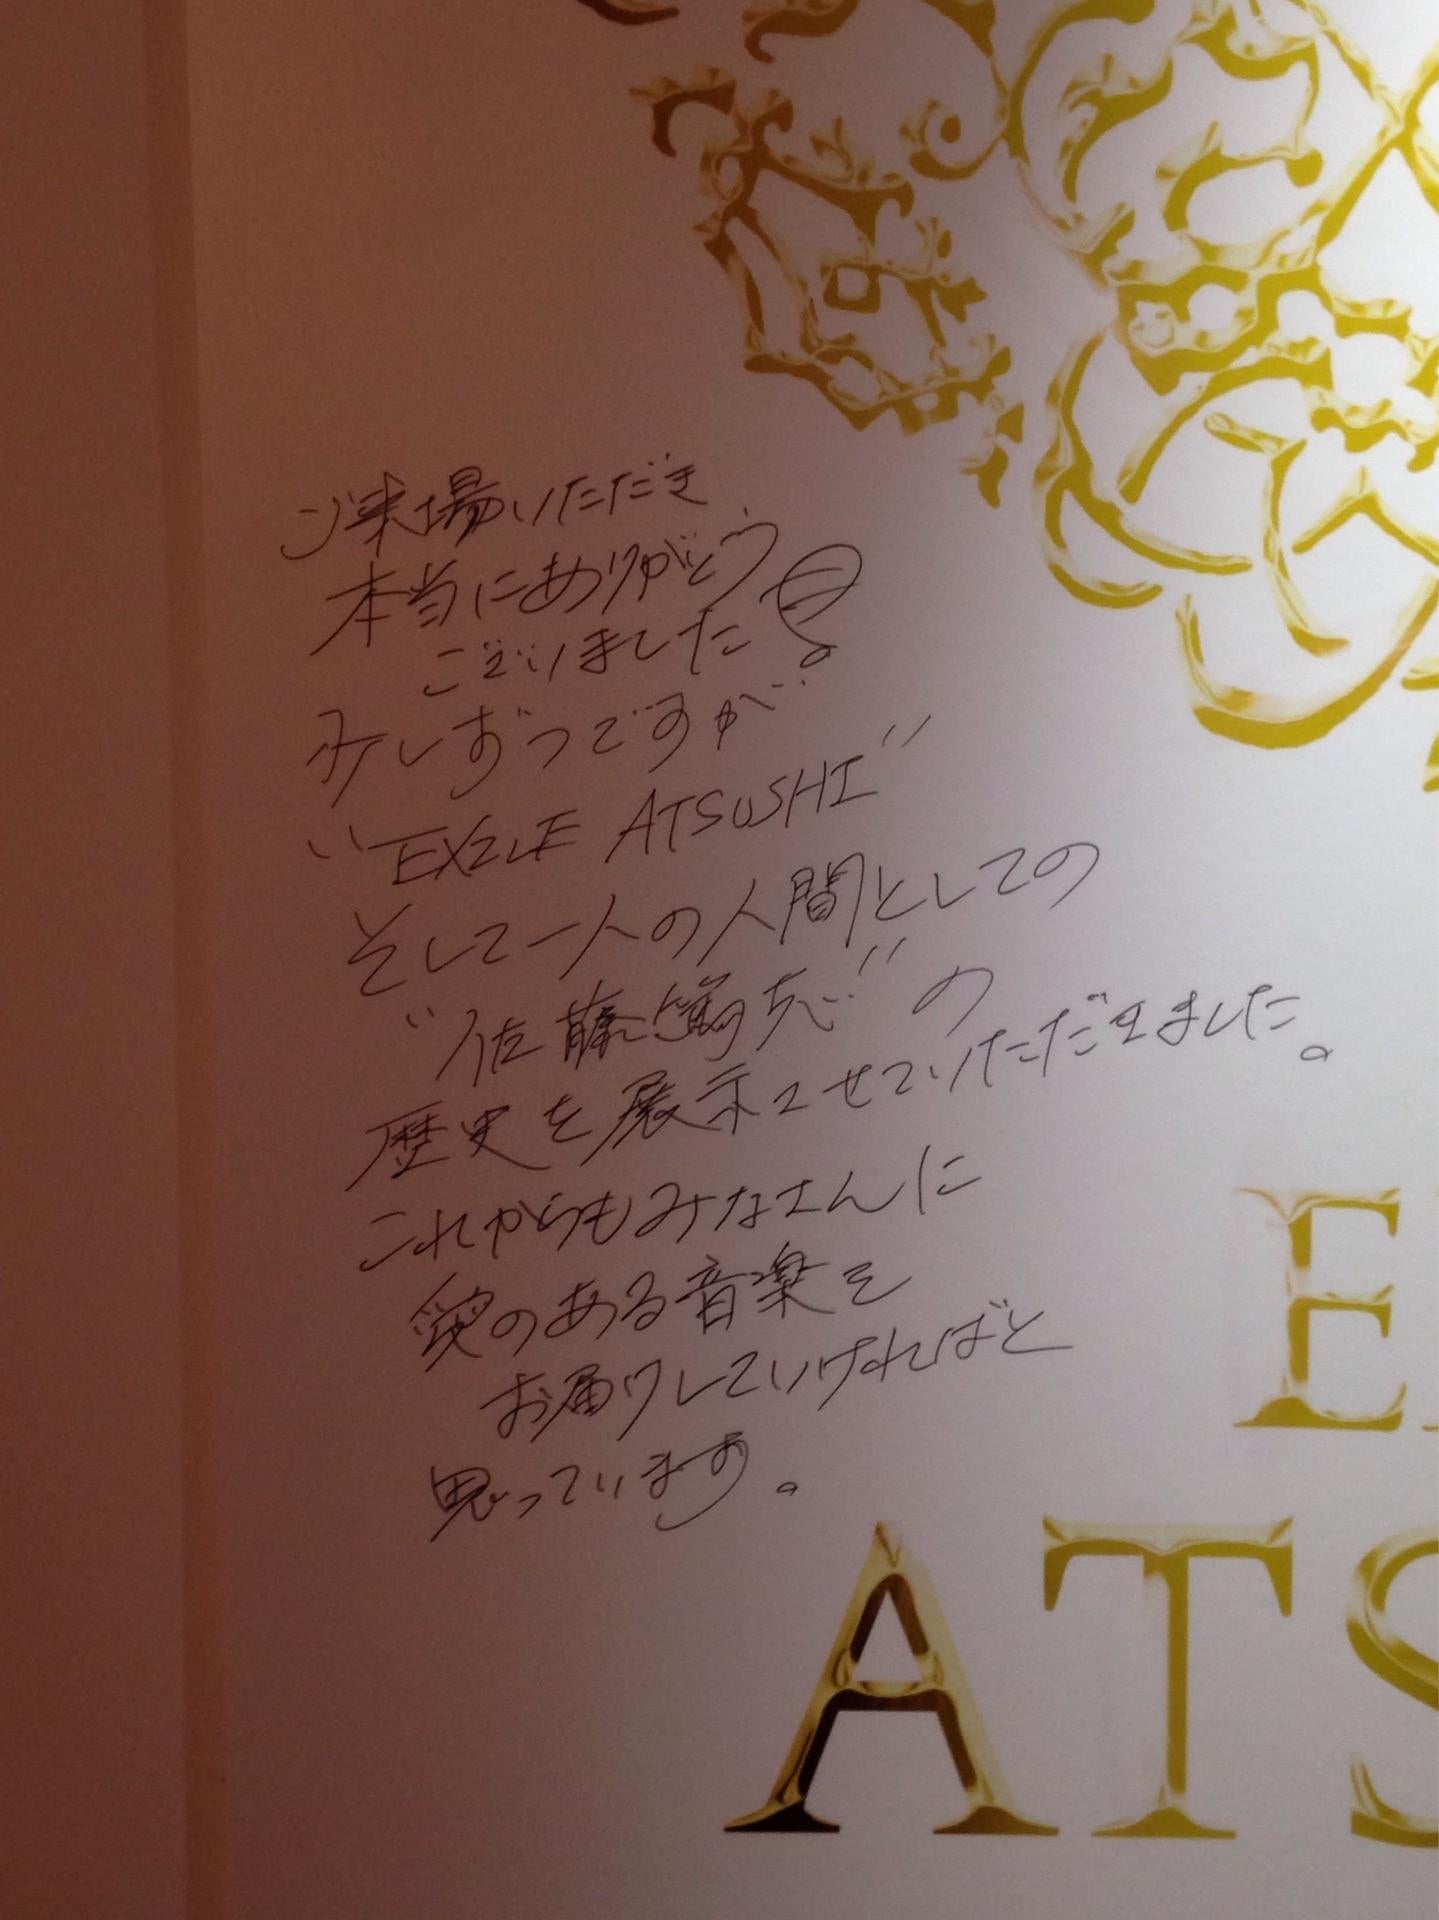 ご来場いただき
本当にありがとう
ございました!
少しずつですが
"EXILE ATSUSHI"
そして一人の人間としての
"佐藤篤志"の
歴史を展示させていただきました。
これからもみなさんに
愛のある音楽を
お届けしていければと
思っています。
E
ATS